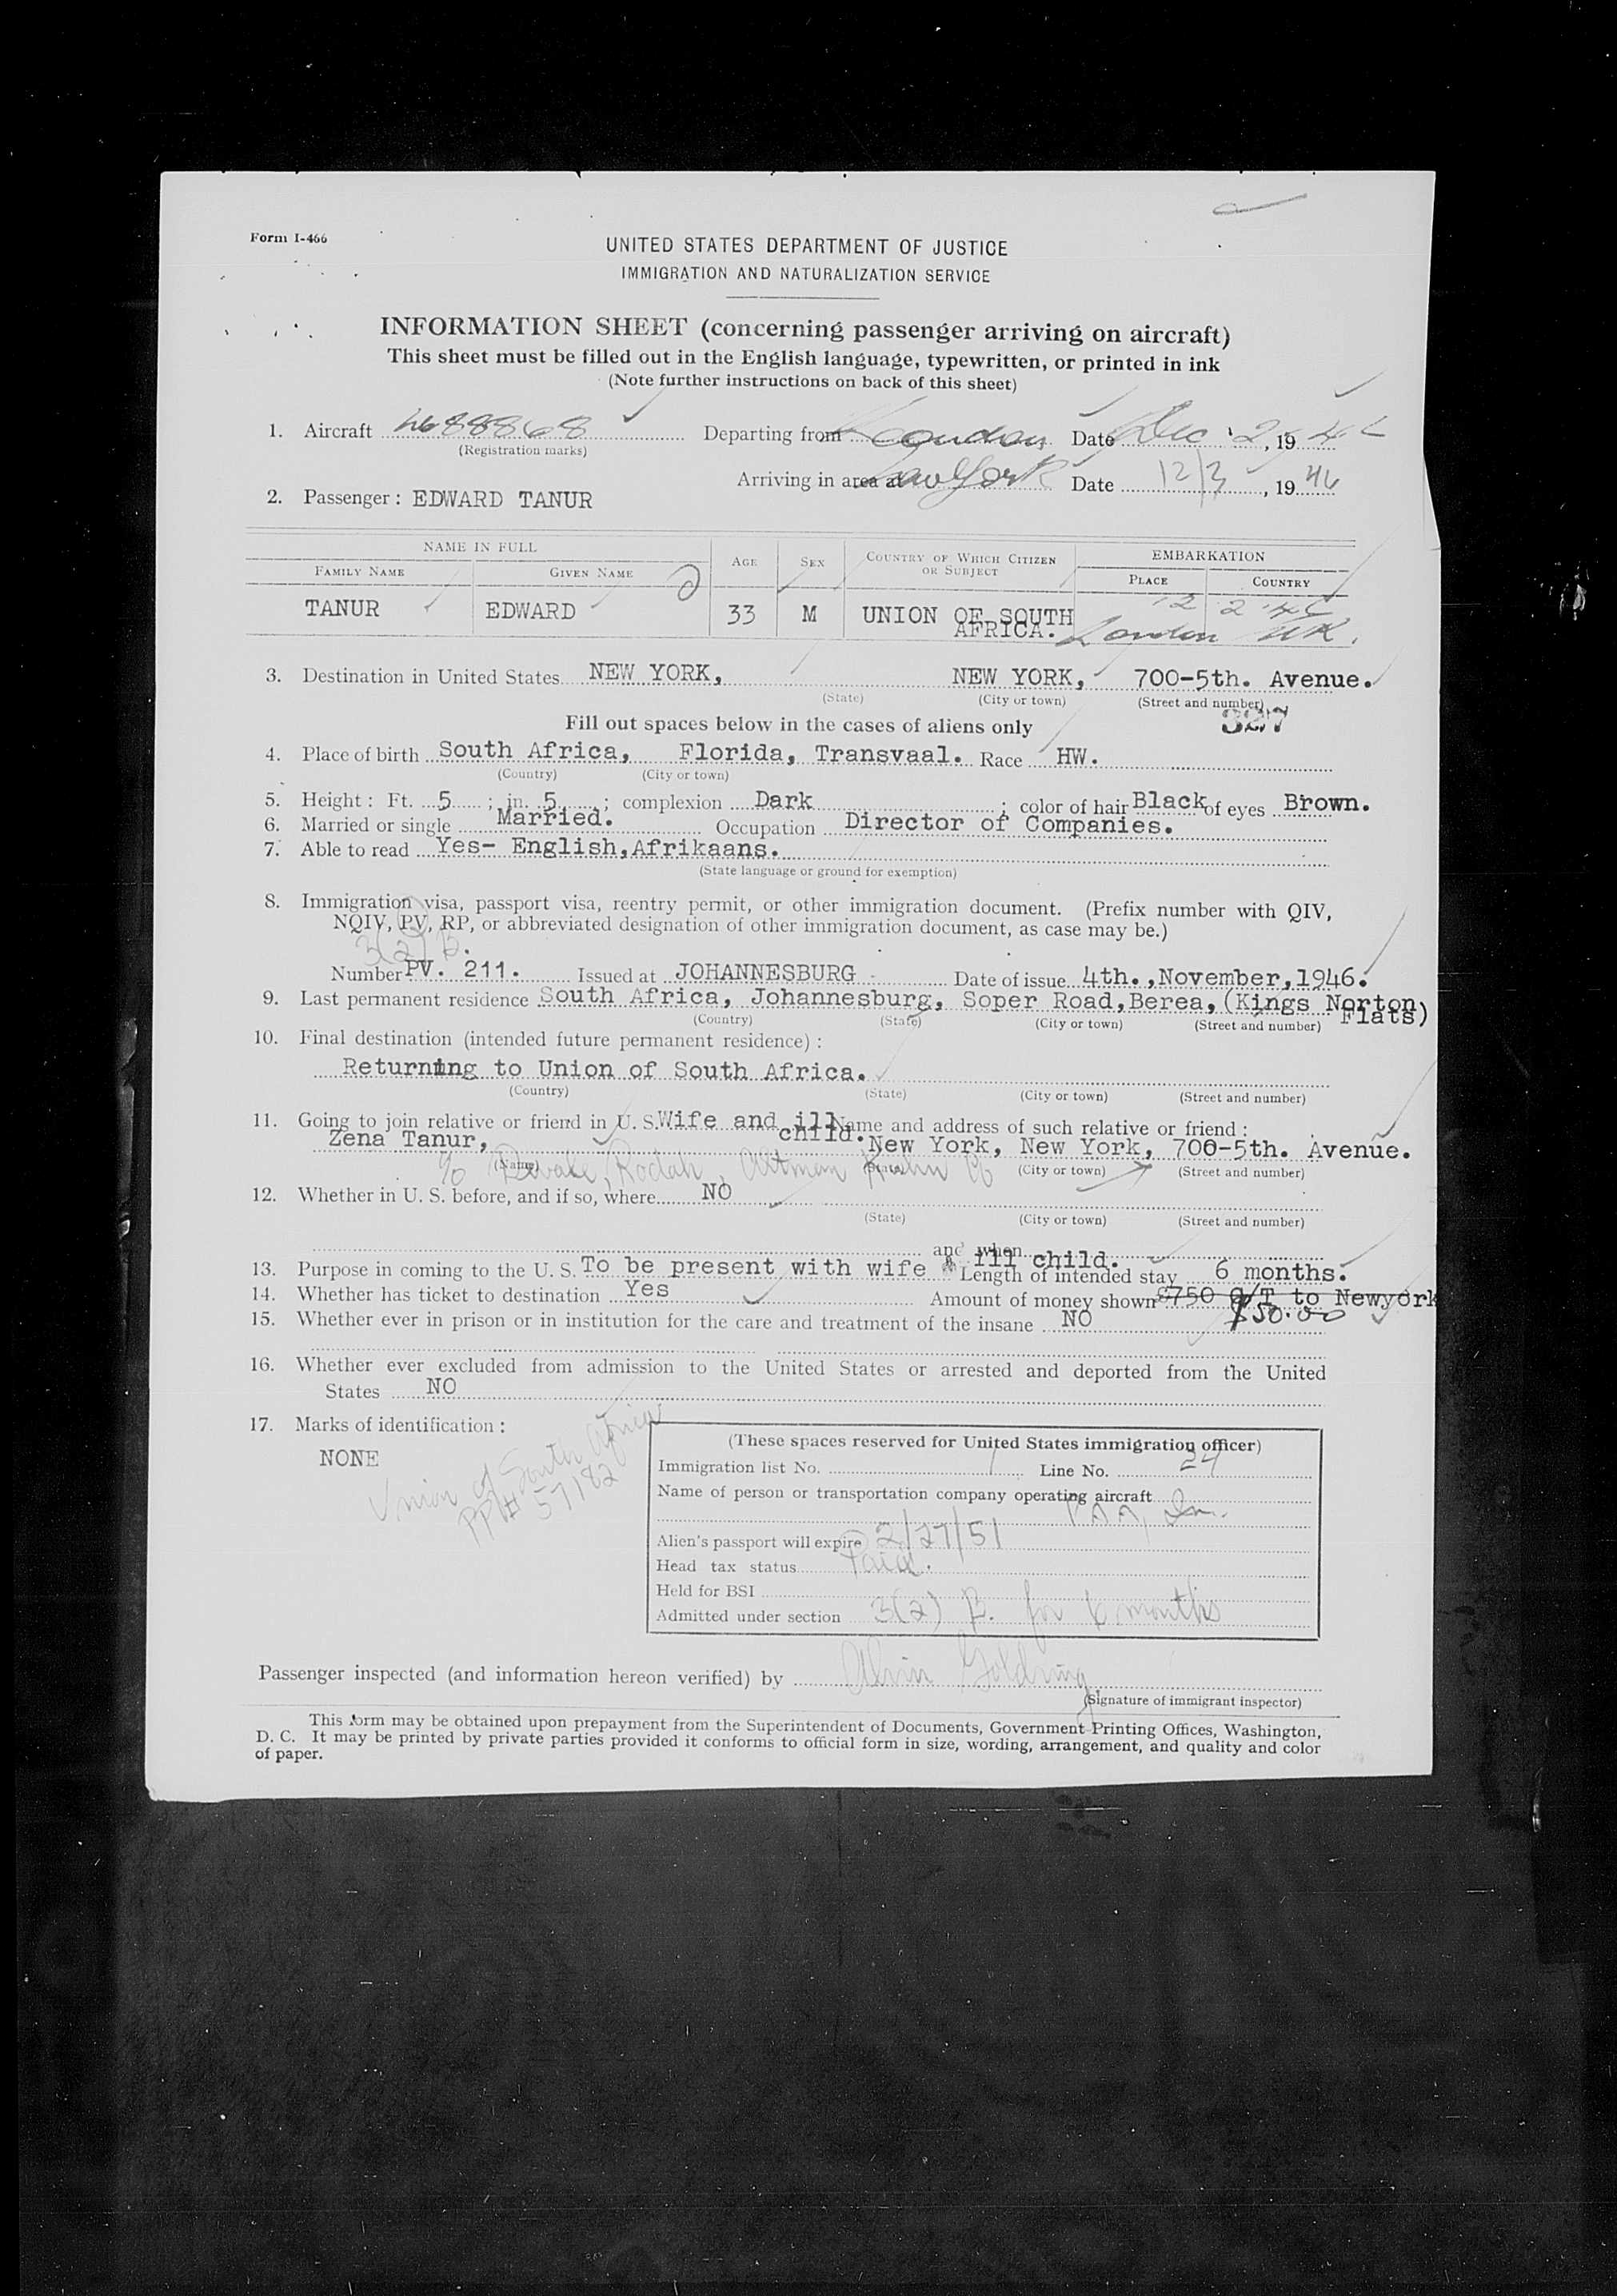 Form I-466
UNITED STATES DEPARTMENT OF JUSTICE
IMMIGRATION AND NATURALIZATION SERVICE
INFORMATION SHEET (concerning passenger arriving on aircraft)
This sheet must be filled out in the English language, typewritten, or printed in ink
(Note further instructions on back of this sheet)
1. Aircraft 88868 Departing from London Date Dec 2, 1946
(Registration marks)
Arriving in area at New York Date 12/3, 1946
2. Passenger: EDWARD TANUR
NAME IN FULL AGE SEX COUNTRY OF WHICH CITIZEN OR SUBJECT EMBARKATION
FAMILY NAME GIVEN NAME PLACE COUNTRY
12 2 46
TANUR EDWARD 33 M UNION OF SOUTH AFRICA. London UK.
3. Destination in United States NEW YORK, NEW YORK, 700-5th. Avenue.
(State) (City or town) (Street and number)
327
Fill out spaces below in the cases of aliens only
4. Place of birth South Africa, Florida, Transvaal. Race HW.
(Country) (City or town)
5. Height: Ft. 5 ; in. 5 ; complexion Dark ; color of hair Black of eyes Brown.
6. Married or single Married. Occupation Director of Companies.
7. Able to read Yes- English,Afrikaans.
(State language or ground for exemption)
8. Immigration visa, passport visa, reentry permit, or other immigration document. (Prefix number with QIV,
NQIV, PV, RP, or abbreviated designation of other immigration document, as case may be.)
3(2) B.
Number PV. 211. Issued at JOHANNESBURG Date of issue 4th.,November,1946.
9. Last permanent residence South Africa, Johannesburg, Soper Road,Berea,(Kings Norton Flats)
(Country) (State) (City or town) (Street and number)
10. Final destination (intended future permanent residence) :
Returning to Union of South Africa.
(Country) (State) (City or town) (Street and number)
11. Going to join relative or friend in U. S. Wife and ill child. Name and address of such relative or friend :
Zena Tanur, New York, New York, 700-5th. Avenue.
(Name) (State) (City or town) (Street and number)
c/o Altman
12. Whether in U. S. before, and if so, where NO
(State) (City or town) (Street and number)
and when
13. Purpose in coming to the U. S. To be present with wife & ill child. Length of intended stay 6 months.
14. Whether has ticket to destination Yes Amount of money shown £750 O/T to Newyork
$50.00
15. Whether ever in prison or in institution for the care and treatment of the insane NO
16. Whether ever excluded from admission to the United States or arrested and deported from the United
States NO
17. Marks of identification :
NONE
Union of South Africa
PP# 57182
(These spaces reserved for United States immigration officer)
Immigration list No. 1 Line No. 24
Name of person or transportation company operating aircraft
PAA, In.
Alien's passport will expire 2/27/51
Head tax status Paid.
Held for BSI
Admitted under section 3(2) B. for 6 months
Passenger inspected (and information hereon verified) by Alvin Goldring
(Signature of immigrant inspector)
This form may be obtained upon prepayment from the Superintendent of Documents, Government Printing Offices, Washington,
D. C. It may be printed by private parties provided it conforms to official form in size, wording, arrangement, and quality and color
of paper.